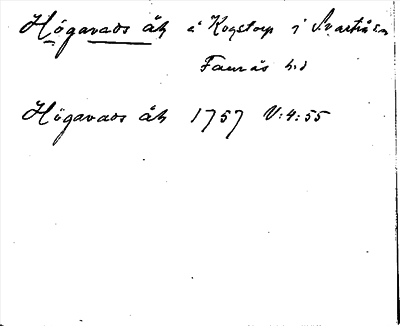 Högavads åk i Kogstorp i Svartrå sn
Faurås hd
Högavads åk 1757 V:4:55